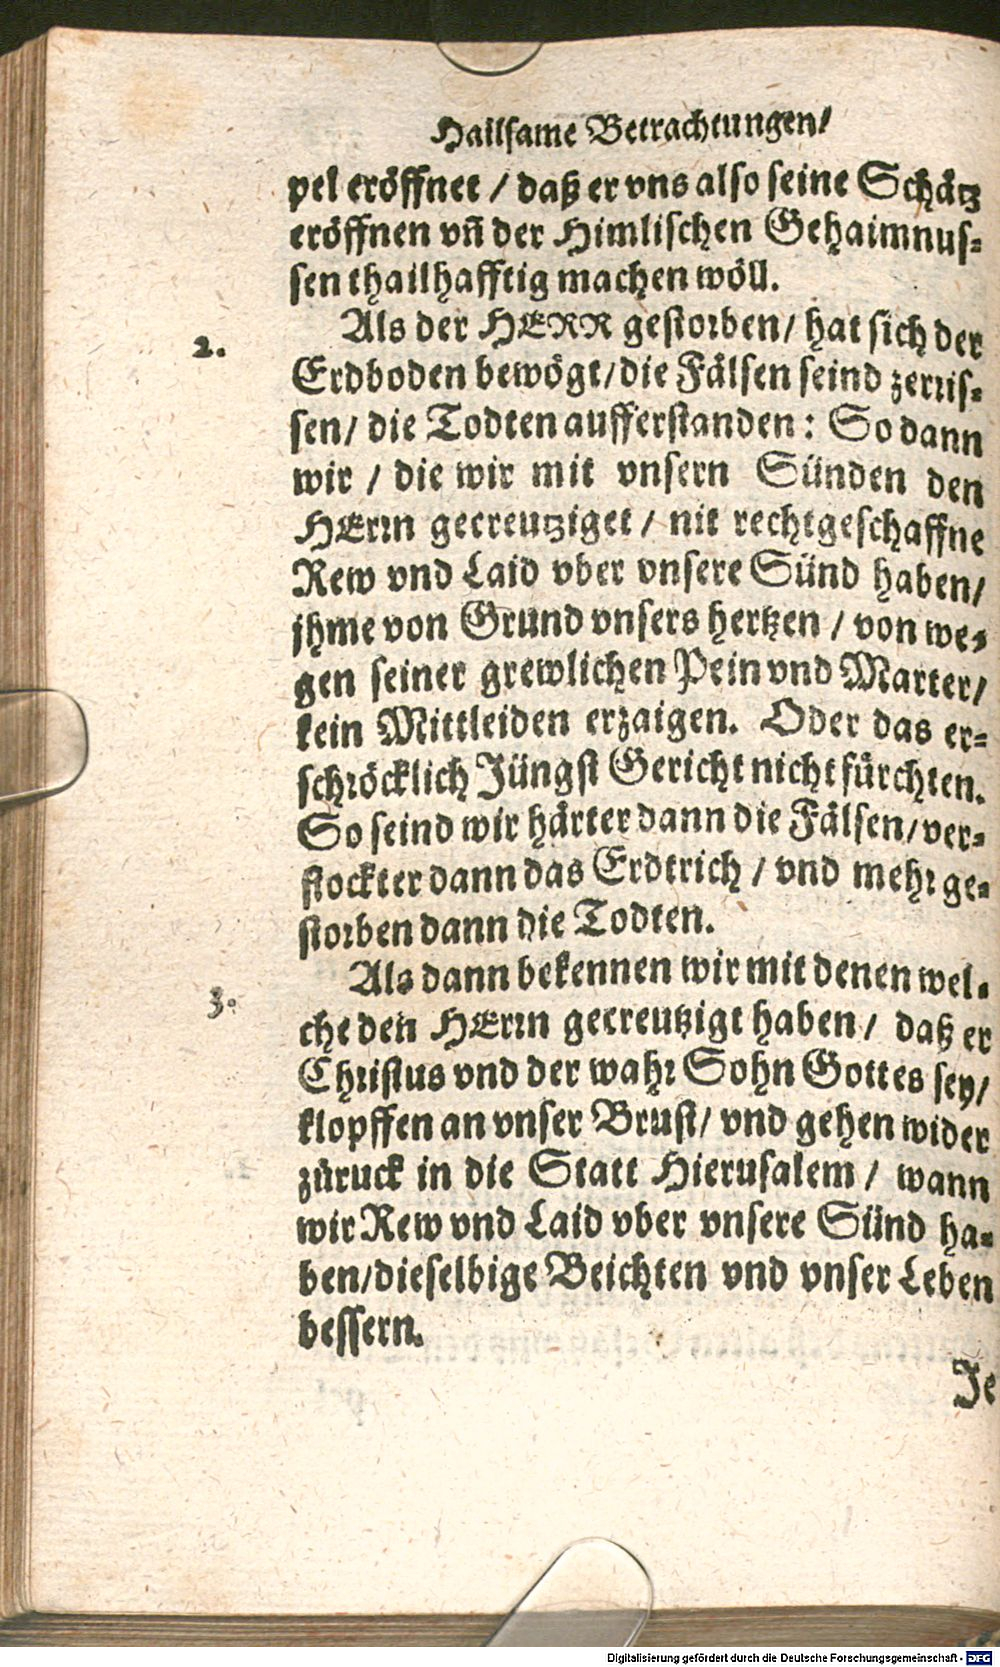 Hailsame Betrachtungen/
pel eröffnet / daß er vns also seine Schätz
eröffnen vñ der Himlischen Gehaimnus-
sen thailhafftig machen wöll.
2. Als der HERR gestorben/ hat sich der
Erdboden bewögt/die Fälsen seind zerris-
sen/ die Todten aufferstanden: So dann
wir / die wir mit vnsern Sünden den
HErrn gecreutziget / nit rechtgeschaffne
Rew vnd Laid vber vnsere Sünd haben/
jhme von Grund vnsers hertzen / von we-
gen seiner grewlichen Pein vnd Marter/
kein Mittleiden erzaigen. Oder das er-
schröcklich Jüngst Gericht nicht fürchten.
So seind wir härter dann die Fälsen/ver-
stockter dann das Erdtrich / vnd mehr ge-
storben dann die Todten.
3. Als dann bekennen wir mit denen wel-
che den HErrn gecreutzigt haben/ daß er
Christus vnd der wahr Sohn Gottes sey/
klopffen an vnser Brust/ vnd gehen wider
züruck in die Statt Hierusalem / wann
wir Rew vnd Laid vber vnsere Sünd ha-
ben/dieselbige Beichten vnd vnser Leben
bessern.
Je
Digitalisierung gefördert durch die Deutsche Forschungsgemeinschaft - DFG